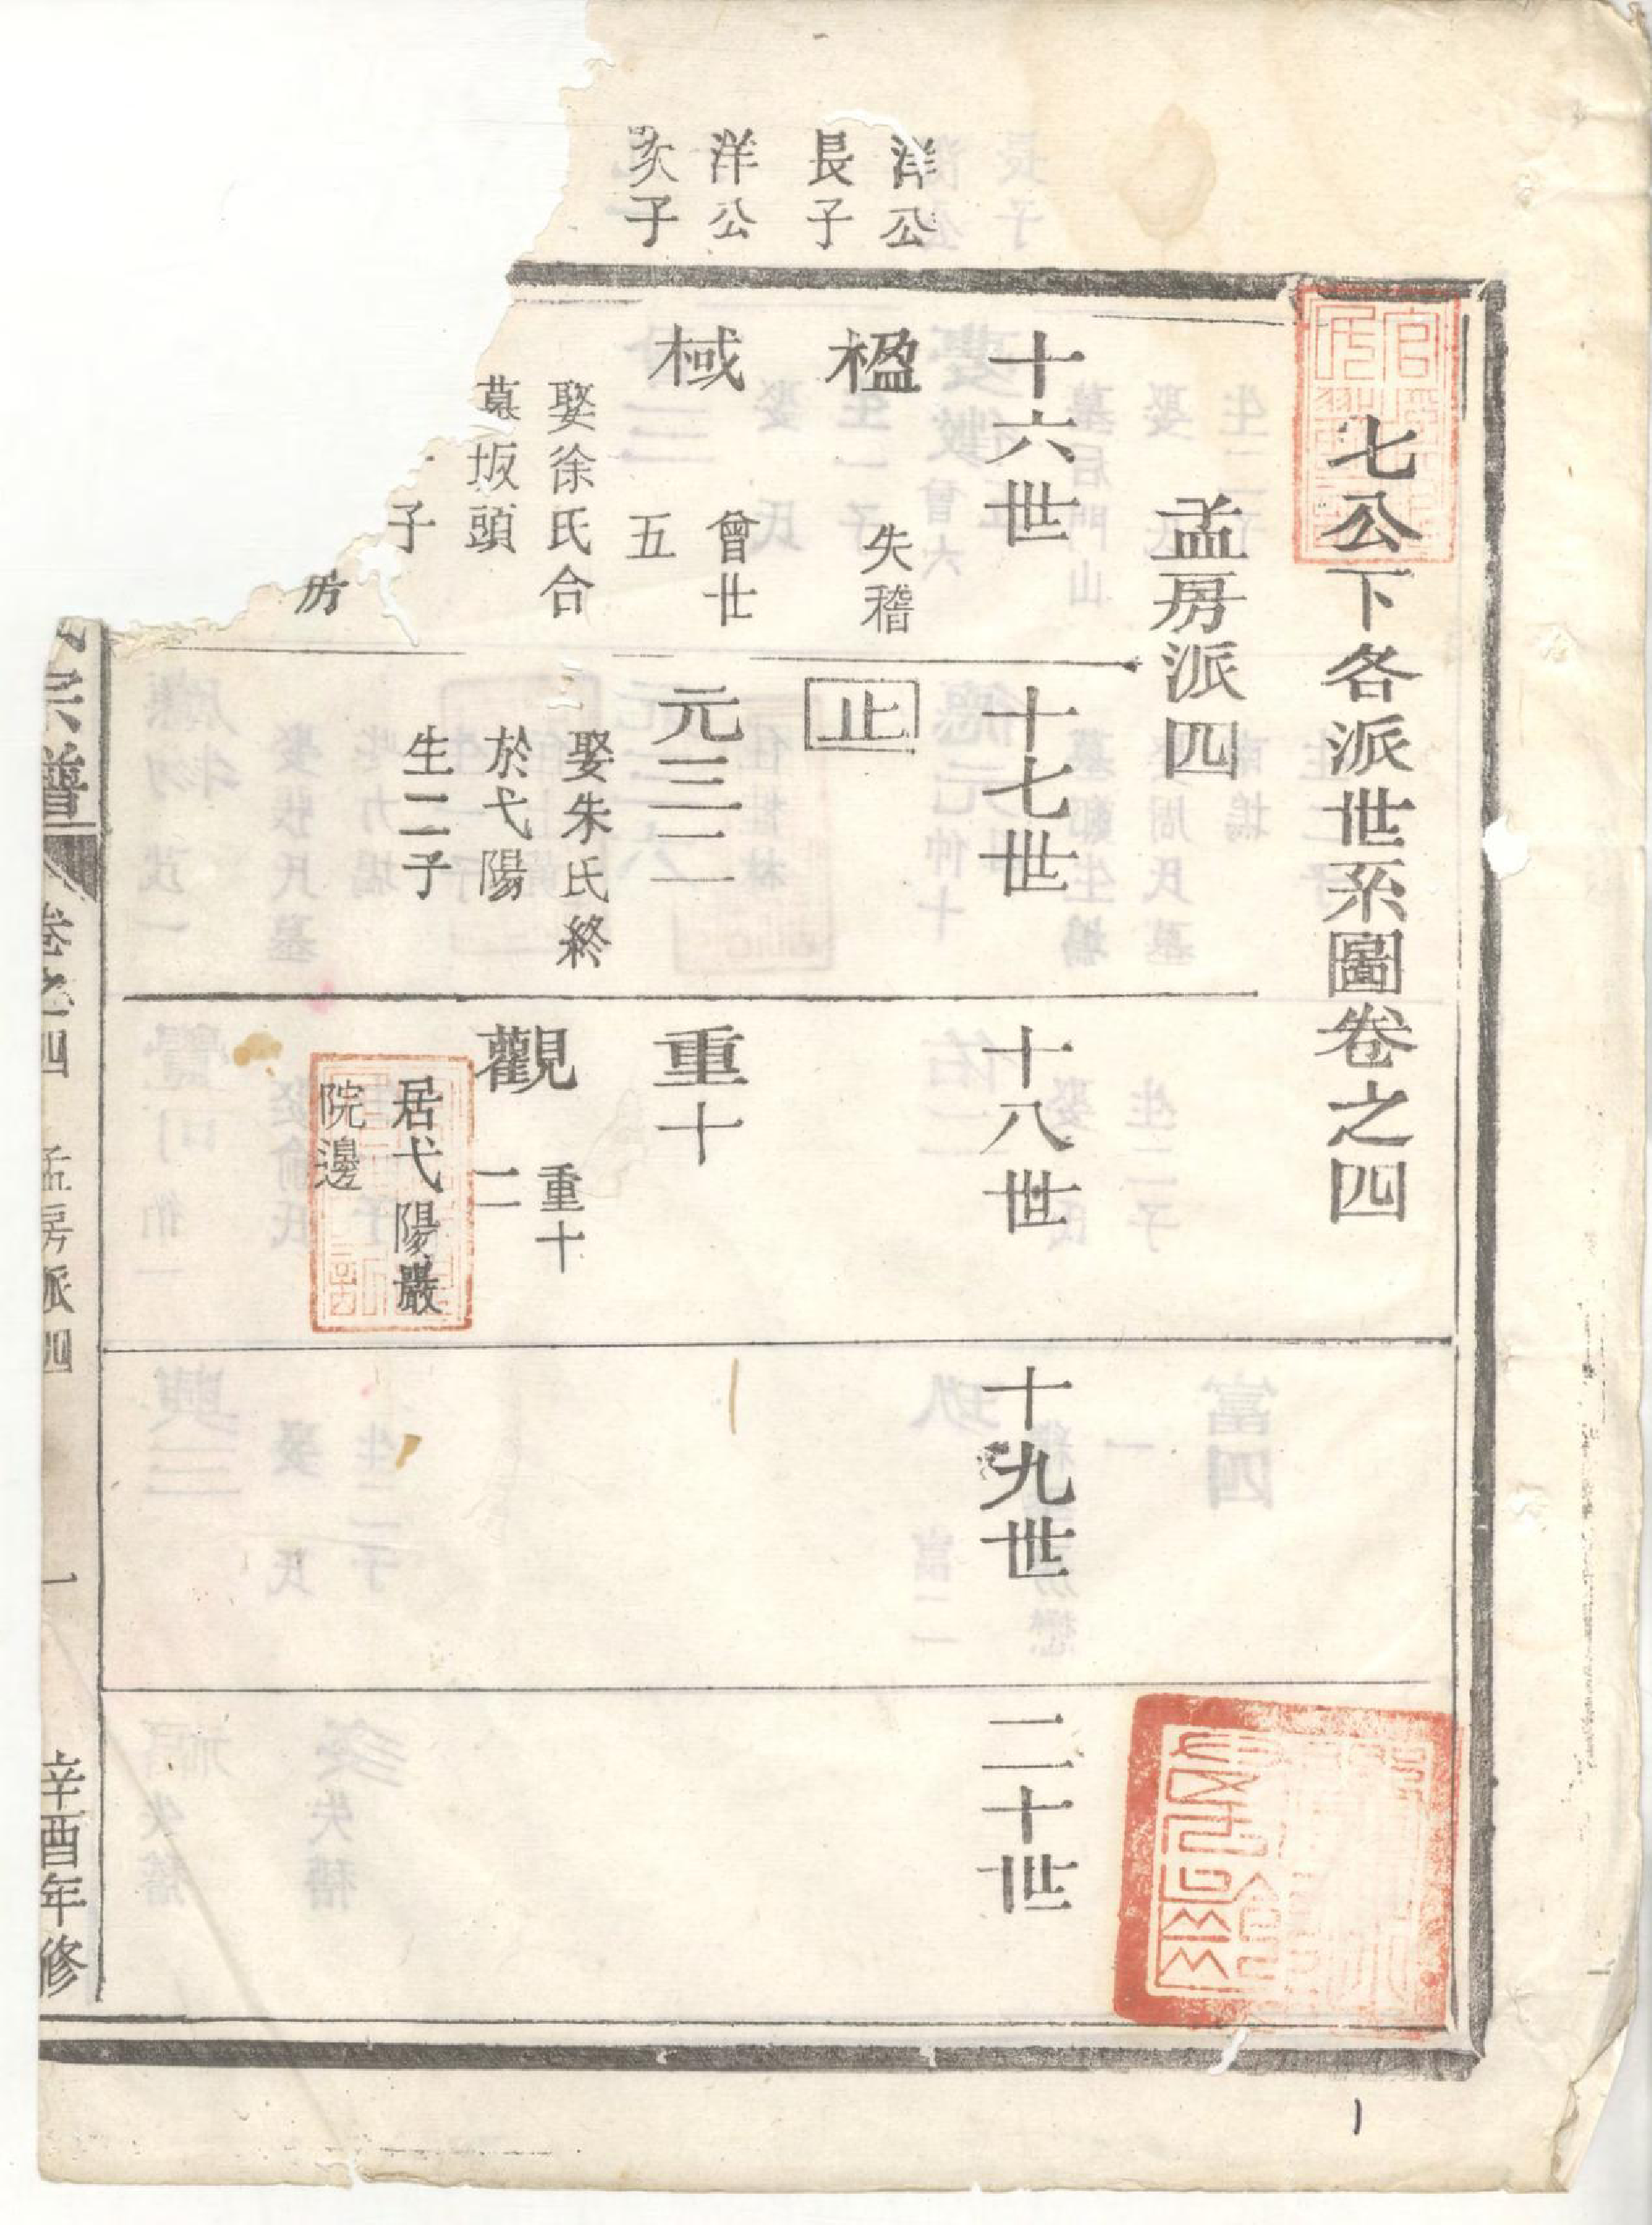 七公下各派世系圖卷之四
孟房派四
十六世
十七世
十八世
十九世
二十世
洋公
長子
楹
失稽
止
洋公
次子
棫
曾廿
五
娶徐氏合
墓坂頭
子
房
元三二
娶朱氏終
於弋陽
生二子
重十
觀
重十
二
居弋陽巖
院邊
宗譜
卷之四
孟房派四
一
辛酉年修
1